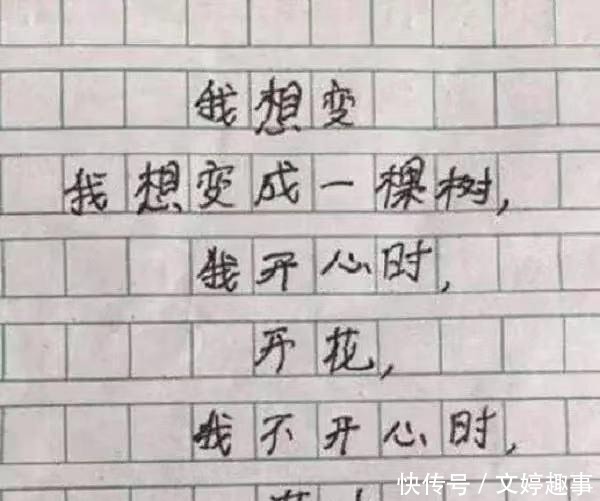 我想变
我想变成一棵树,
我开心时,
开花,
我不开心时,
快传号／文婷趣事